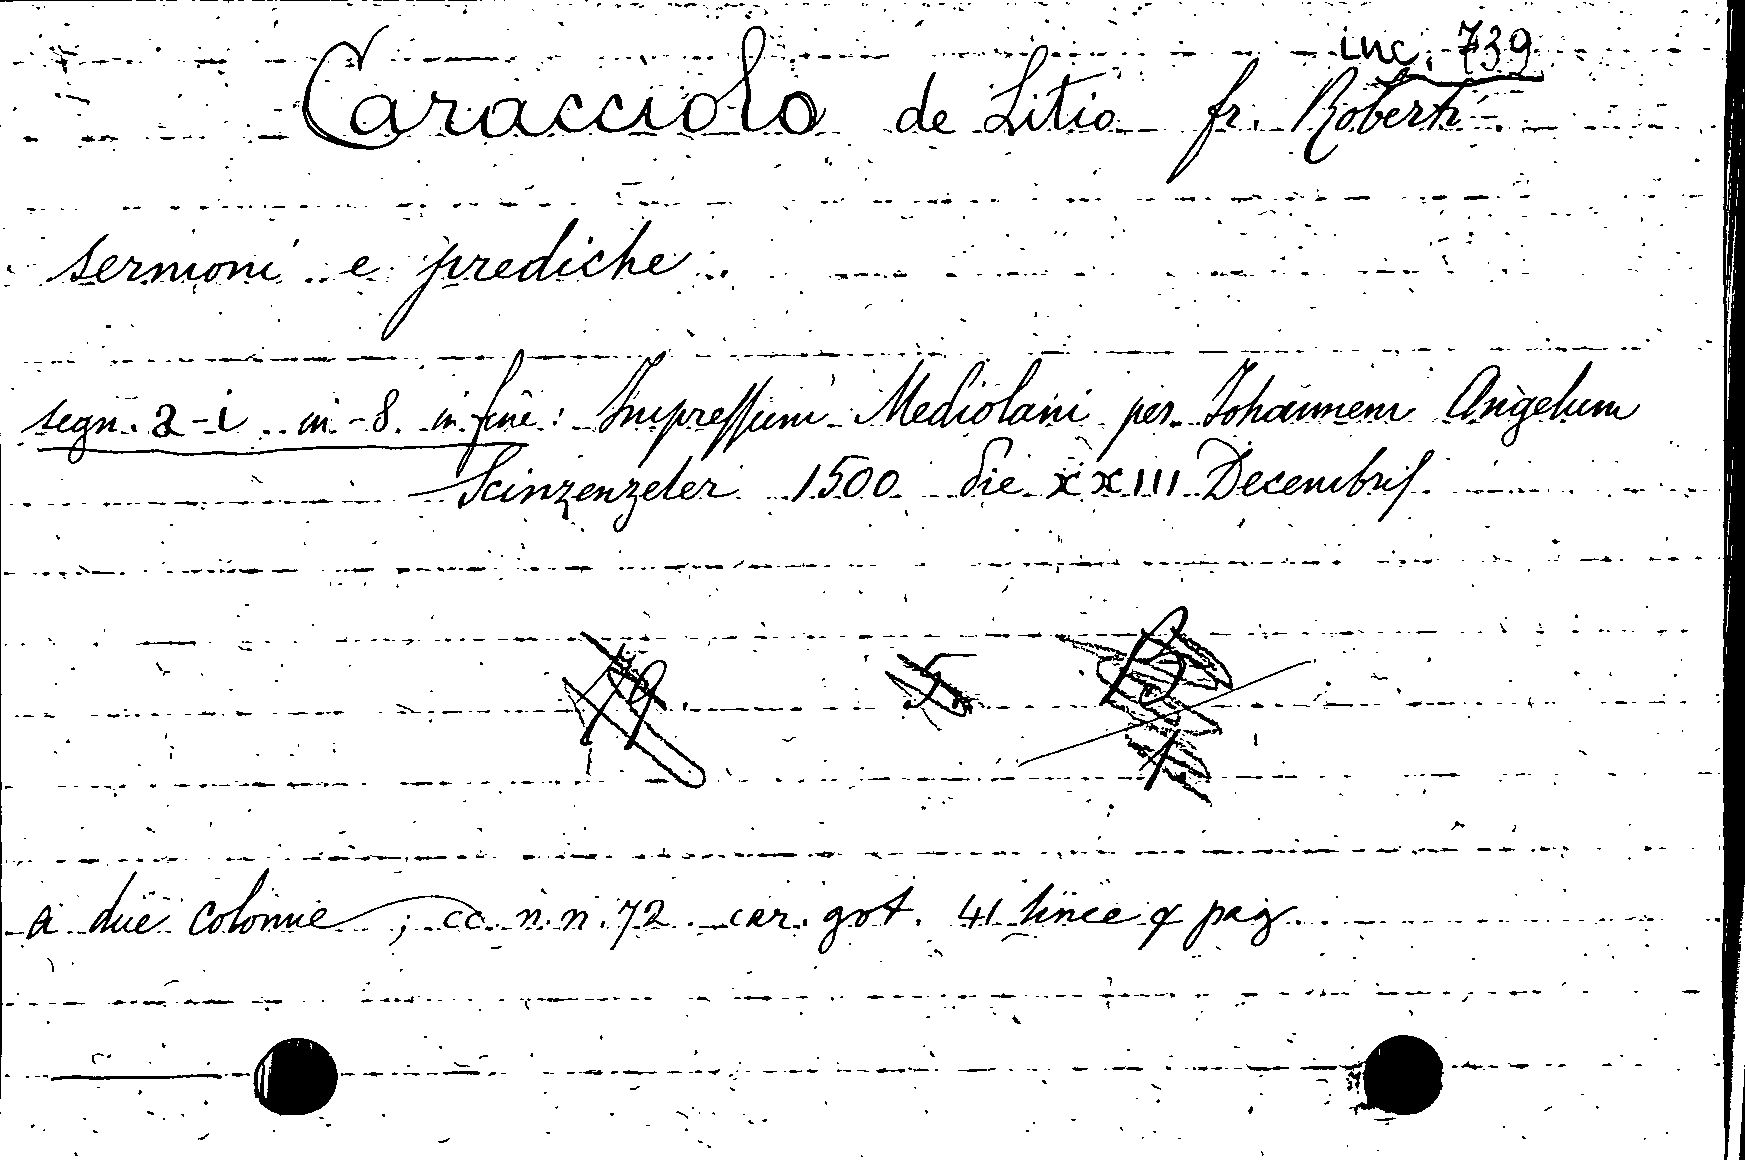 inc. 739
Caracciolo de Litio fr. Roberti
sermoni e prediche
segn. a-i in-8. in fine: Impressum Mediolani per Johannem Angelum
Scinzenzeler 1500 die XXIII Decembris
a due colonne; cc. n. n. 72 car. got. 41 linee pag.